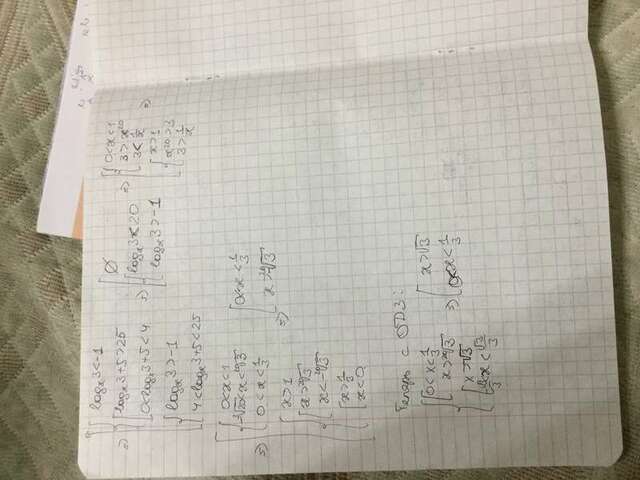 log_x 3 < -1
log_x 3 + 5 > 25
0 < log_x 3 + 5 < 4
log_x 3 > -1
4 < log_x 3 + 5 < 25
⇒
∅
log_x 3 < 20
log_x 3 > -1
⇒
0 < x < 1
3 > x^20
3 < 1/x
x > 1
x^20 > 3
3 > 1/x
⇒
0 < x < 1
-²⁰√3 < x < ²⁰√3
0 < x < 1/3
x > 1
x > ²⁰√3
x < -²⁰√3
x > 1/3
x < 0
⇒
0 < x < 1/3
x > ²⁰√3
Теперь с ОДЗ:
0 < x < 1/3
x > ²⁰√3
x > √3
-√3/3 < x < √3/3
⇒
x > √3
0 < x < 1/3